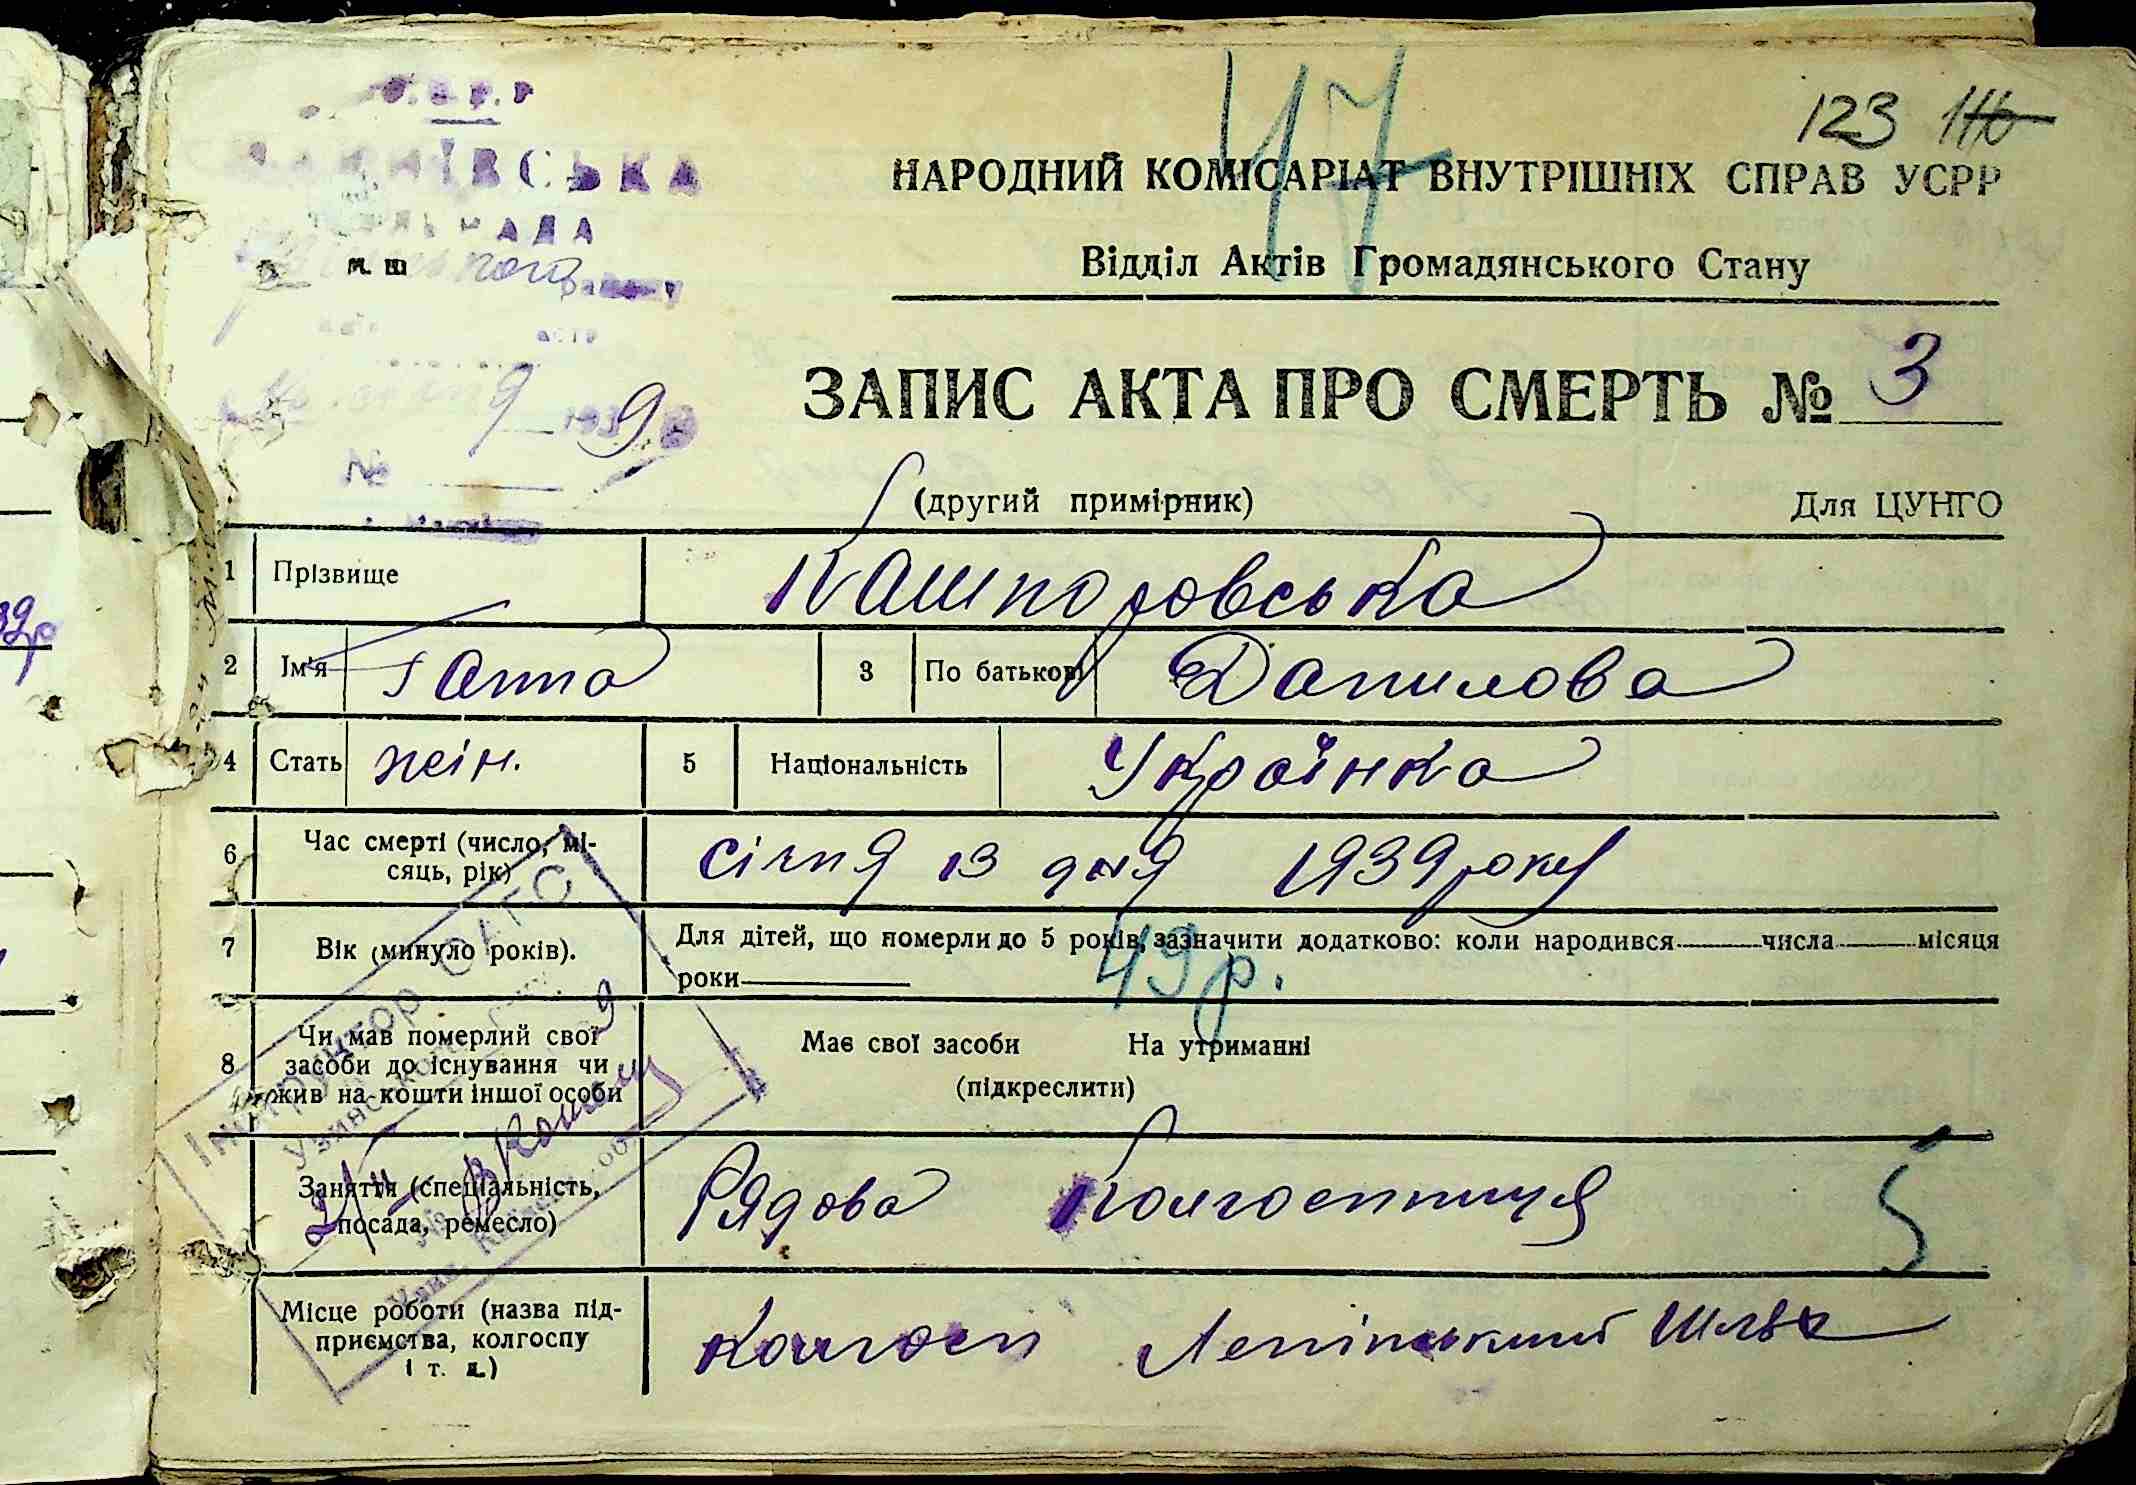 47
123 116
НАРОДНИЙ КОМІСАРІАТ ВНУТРІШНІХ СПРАВ УСРР
Відділ Актів Громадянського Стану
РАДА
1939
№
ЗАПИС АКТА ПРО СМЕРТЬ № 3
(другий примірник) Для ЦУНГО
1 Прізвище Кашпоровська
2 Ім'я Ганна 3 По батькові Данилова
4 Стать жін. 5 Національність Українка
6 Час смерті (число, мі-
сяць, рік) січня 13 дня 1939 року
7 Вік (минуло років). Для дітей, що померли до 5 років, зазначити додатково: коли народився числа місяця
роки 49 р.
8 Чи мав померлий свої
засоби до існування чи
жив на кошти іншої особи
Має свої засоби На утриманні
(підкреслити)
Інструктор ОАГС
Заняття (спеціальність,
посада, ремесло) Рядова Колгоспниця 5
Місце роботи (назва під-
приємства, колгоспу
і т. д.) Колгосп Ленінський Шлях